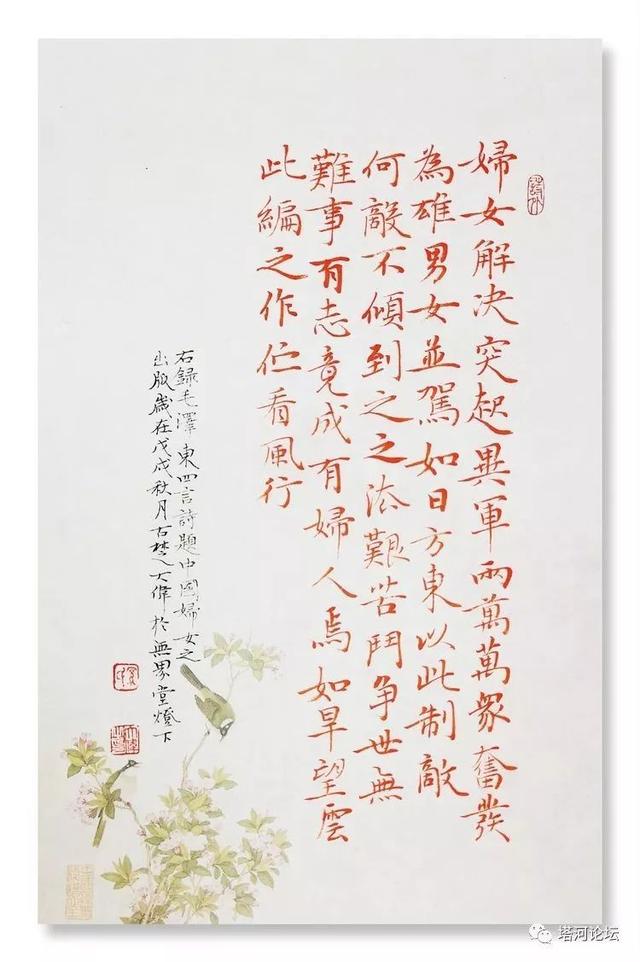 婦女解决突起異軍兩萬萬眾奮發
為雄男女並駕如日方東以此制敵
何敵不傾到之之法艱苦鬥争世無
難事有志竟成有婦人焉如旱望雲
此編之作伫看風行
右錄毛澤東四言詩題中國婦女之
出版歲在戊戌秋月古楚人大偉於無界堂燈下
塔河论坛